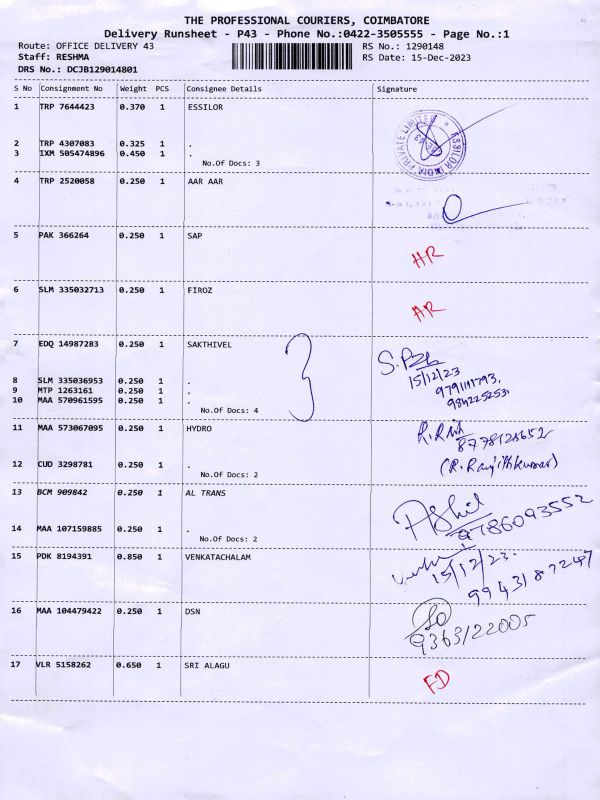 THE PROFESSIONAL COURIERS, COIMBATORE
Delivery Runsheet - P43 - Phone No.:0422-3505555 - Page No.:1
Route: OFFICE DELIVERY 43 RS No.: 1290148
Staff: RESHMA RS Date: 15-Dec-2023
DRS No.: DCJB129014801
S No Consignment No Weight PCS Consignee Details Signature
1 TRP 7644423 0.370 1 ESSILOR
ESSILOR INDIA PRIVATE LIMITED
2 TRP 4307083 0.325 1 .
3 IXM 505474896 0.450 1 .
No.Of Docs: 3
4 TRP 2520058 0.250 1 AAR AAR
5 PAK 366264 0.250 1 SAP
HR
6 SLM 335032713 0.250 1 FIROZ
AR
7 EDQ 14987283 0.250 1 SAKTHIVEL
15/12/23
9791191793,
8 SLM 335036953 0.250 1 .
9 MTP 1263161 0.250 1 .
10 MAA 570961595 0.250 1 .
9842252531
No.Of Docs: 4
11 MAA 573067095 0.250 1 HYDRO
8778128652
12 CUD 3298781 0.250 1 .
(R. Ranjithkumar)
No.Of Docs: 2
13 BCM 909842 0.250 1 AL TRANS
9786093552
14 MAA 107159885 0.250 1 .
No.Of Docs: 2
15 PDK 8194391 0.850 1 VENKATACHALAM
15/12/23.
9943187247
16 MAA 104479422 0.250 1 DSN
9363122005
17 VLR 5158262 0.650 1 SRI ALAGU
FD